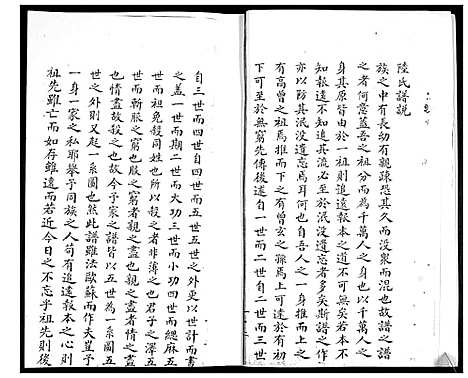 陸氏譜說
族之中有長幼有親疎恐其久而没泉而混也故譜之譜
之者何意蓋吾之祖分而為千萬人之身也以千萬人之
身其原皆由於一祖則追遠報本之道不可無矣若本不
知報遠不知追其流必至於泯没遺忘者多矣斯譜之作
亦以防其泯没遺忘爲耳何也自吾人之一身推而上之
有高曾之祖爲推而下之有曾玄之孫爲上可逹於有初
下可至於無窮先傳後述自一世而二世自二世而三世
自三世而四世自四世而五世五世之外更以世計而書
之蓋一世而期二世而大功三世而小功四世而緦麻五
世而祖免殺同姓也所以殺之者非薄之也君子之澤五
世而斬服之窮者親之盡也親之盡者情之盡
也情盡故殺之也故今予家之譜皆以五世為一系圖五
世之外則又起一系圖也然此譜雖法歐蘇而作夫豈予
一身一家之私耶舉予同族之人苟有追遠報本之心則
祖先雖亡而如存雖遠而若近今日之不忘乎祖先則後